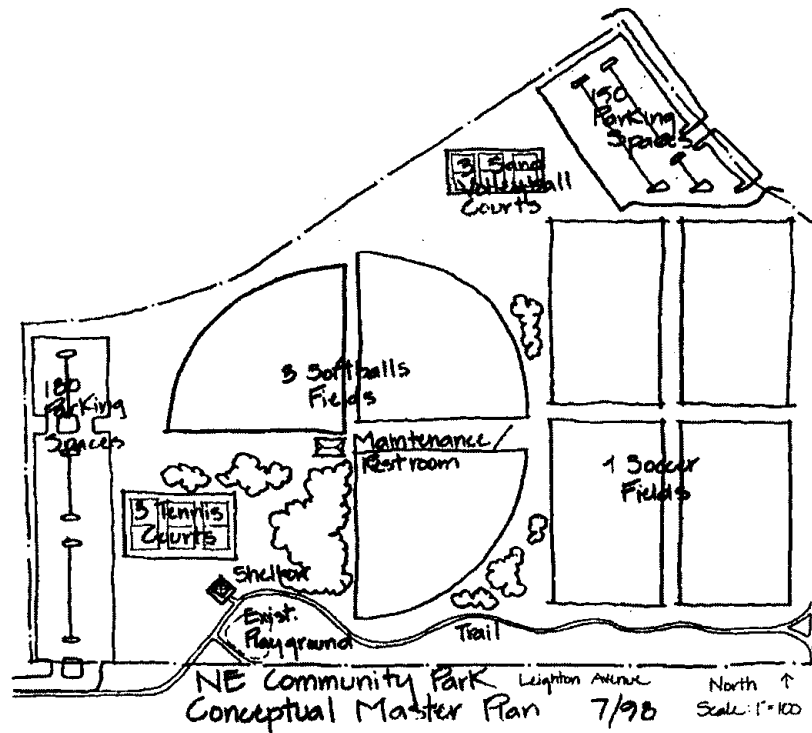 150
Parking
Spaces
3 Sand
Volleyball
Courts
3 Softballs
Fields
180
Parking
Spaces
Maintenance /
Restroom
4 Soccer
Fields
3 Tennis
Courts
Shelter
Exist.
Playground
Trail
NE Community Park
Leighton Avenue
North ↑
Conceptual Master Plan 7/98
Scale: 1"=100